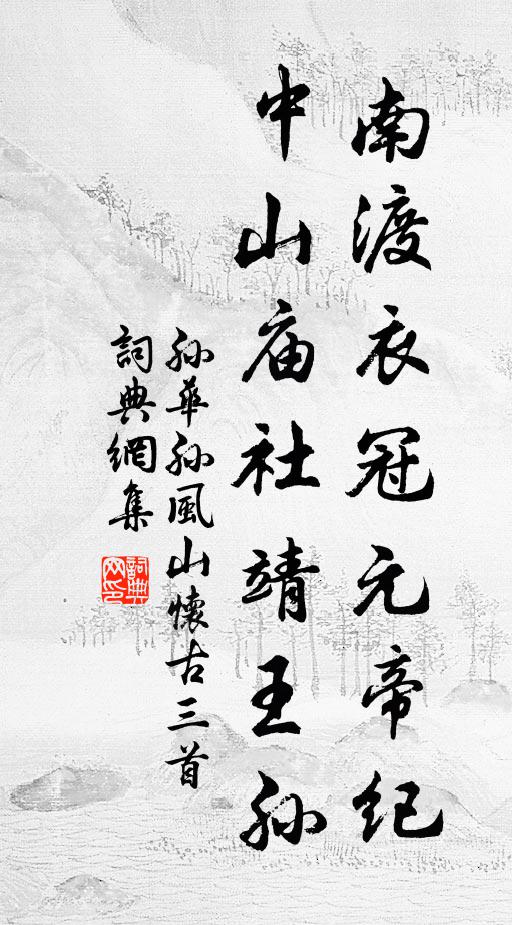 南渡衣冠元帝纪
中山庙社靖王孙
孙華孙風山懷古三首
詞典網集
詞典网印